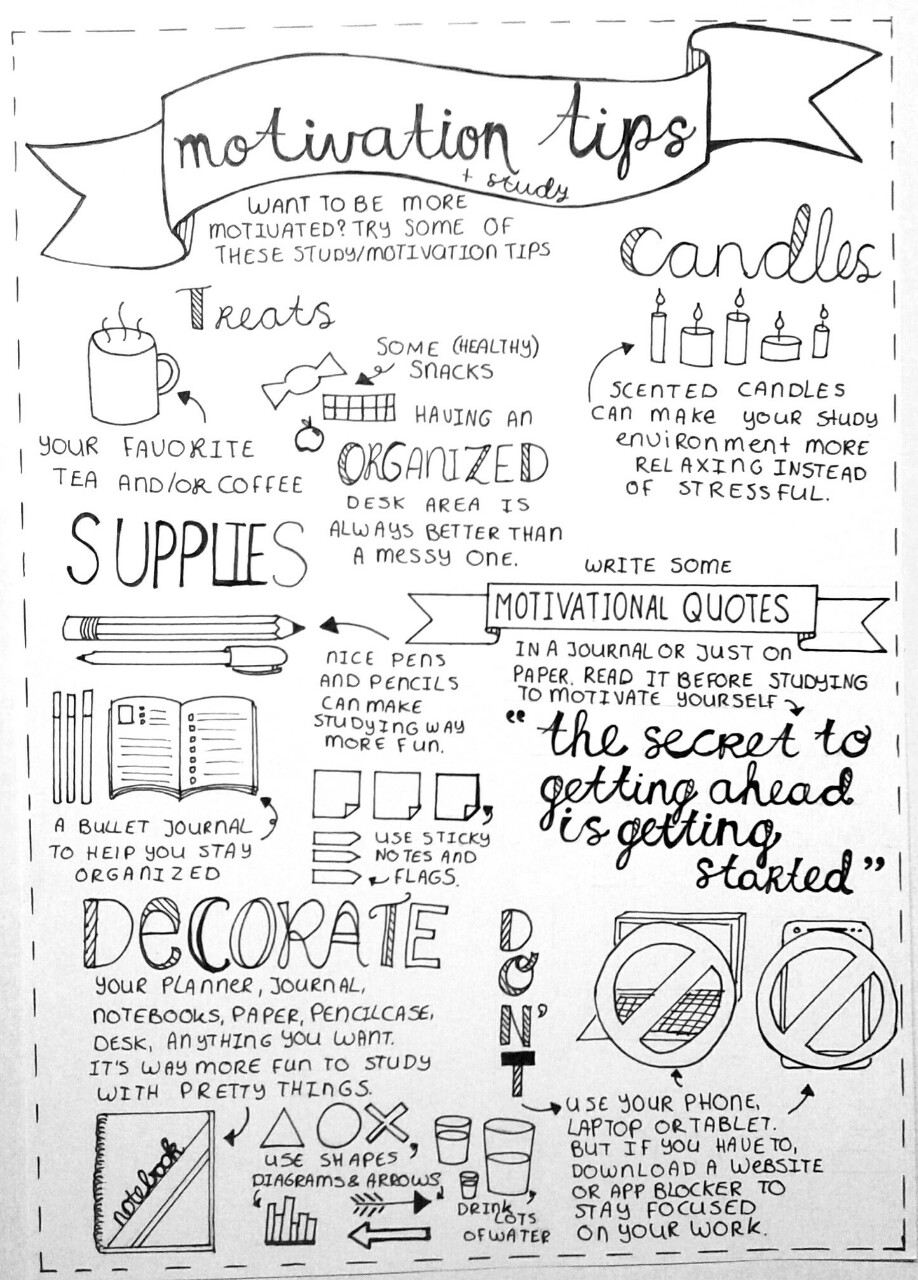 motivation tips
+ study
WANT TO BE MORE
MOTIVATED? TRY SOME OF
THESE STUDY/MOTIVATION TIPS
Candles
SCENTED CANDLES
CAN MAKE YOUR STUDY
environment MORE
RELAXING INSTEAD
OF STRESSFUL.
Treats
SOME (HEALTHY)
SNACKS
YOUR FAVORITE
TEA AND/OR COFFEE
HAVING AN
ORGANIZED
DESK AREA IS
ALWAYS BETTER THAN
A MESSY ONE.
SUPPLIES
NICE PENS
AND PENCILS
CAN MAKE
STUDYING WAY
MORE FUN.
A BULLET JOURNAL
TO HELP YOU STAY
ORGANIZED
USE STICKY
NOTES AND
FLAGS.
WRITE SOME
MOTIVATIONAL QUOTES
IN A JOURNAL OR JUST ON
PAPER. READ IT BEFORE STUDYING
TO MOTIVATE YOURSELF
“the secret to
getting ahead
is getting
started”
DECORATE
YOUR PLANNER, JOURNAL,
NOTEBOOKS, PAPER, PENCILCASE,
DESK, ANYTHING YOU WANT.
IT'S WAY MORE FUN TO STUDY
WITH PRETTY THINGS.
notebook
USE SHAPES,
DIAGRAMS & ARROWS,
DRINK
LOTS
OF WATER
DON'T
USE YOUR PHONE,
LAPTOP OR TABLET.
BUT IF YOU HAVE TO,
DOWNLOAD A WEBSITE
OR APP BLOCKER TO
STAY FOCUSED
ON YOUR WORK.